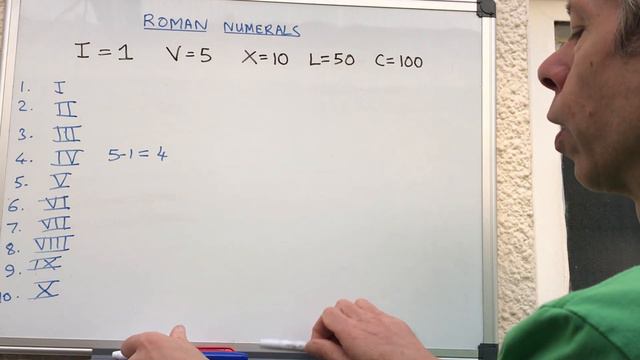 ROMAN NUMERALS
I = 1 V = 5 X = 10 L = 50 C = 100
1. I
2. II
3. III
4. IV 5-1 = 4
5. V
6. VI
7. VII
8. VIII
9. IX
10. X